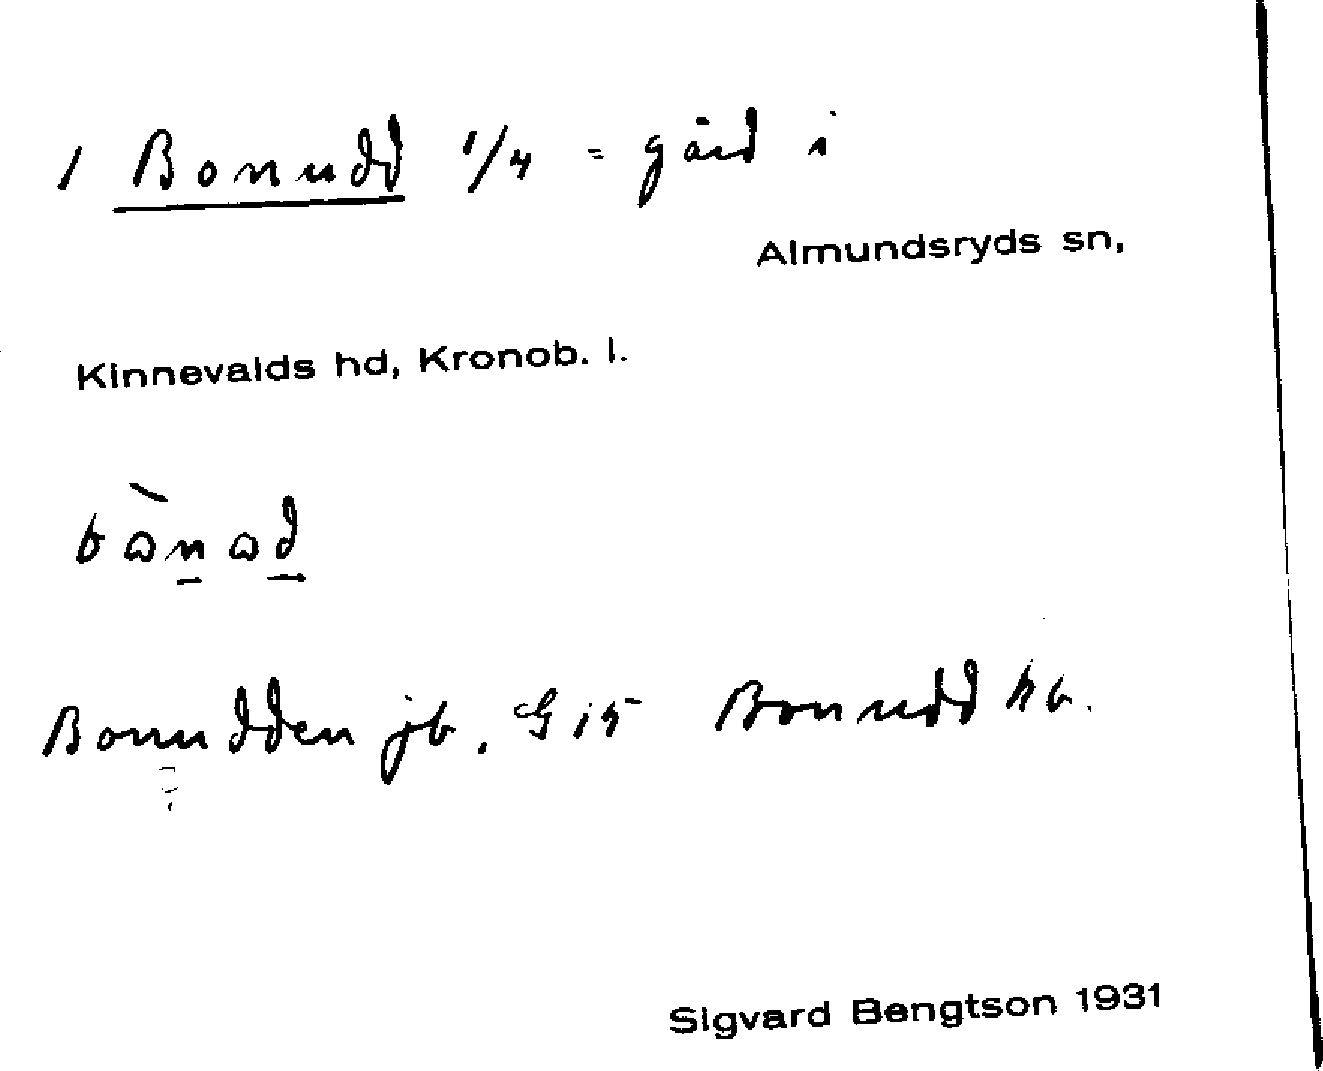 1 Bonudd 1/4 = gård i
Almundsryds sn,
Kinnevalds hd, Kronob. l.
Bonudden jb. G 15 Bonudd hb.
Sigvard Bengtson 1931